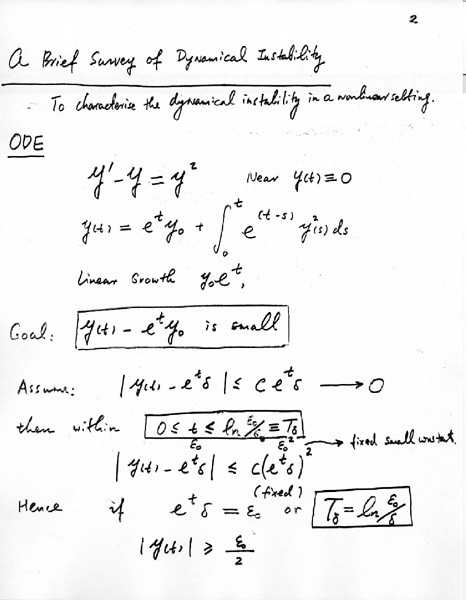 2
A Brief Survey of Dynamical Instability
- To characterise the dynamical instability in a nonlinear setting.
ODE
y' - y = y² Near y(t) ≡ 0
y(t) = eᵗy₀ + ∫₀ᵗ e^(t-s) y²(s) ds
Linear Growth y₀eᵗ,
Goal: y(t) - eᵗy₀ is small
Assume: | y(t) - eᵗδ | ≤ C eᵗδ → 0
then within 0 ≤ t ≤ ln ε₀/δ ≡ T_δ
ε₀ ε₀² → fixed small constant.
| y(t) - eᵗδ | ≤ C(eᵗδ)²
Hence if eᵗδ = ε₀ (fixed) or T_δ = ln ε₀/δ
| y(t) | ≥ ε₀/2